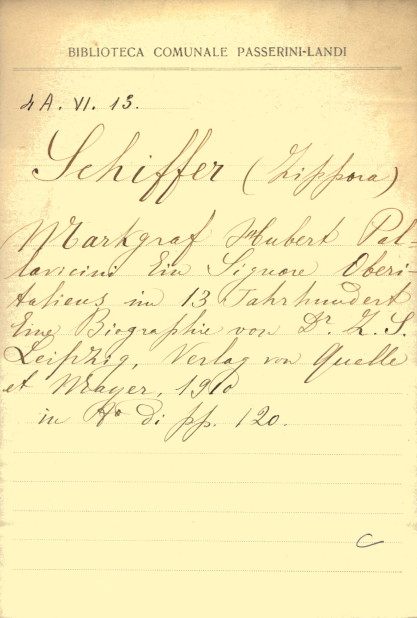 BIBLIOTECA COMUNALE PASSERINI-LANDI
4A. VI. 13.
Schiffer (Zippora)
Markgraf Hubert Pal-
lavicini Ein Signore Oberi-
taliens im 13 Jahrhundert
Eine Biographie von Dr. Z. S.
Leipzig, Verlag von Quelle
et Mayer, 1910
in 8° di pp. 120.
C